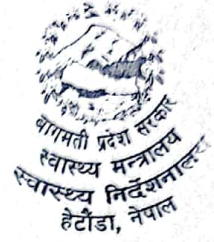 बागमती प्रदेश सरकार
स्वास्थ्य मन्त्रालय
स्वास्थ्य निर्देशनालय
हेटौंडा, नेपाल